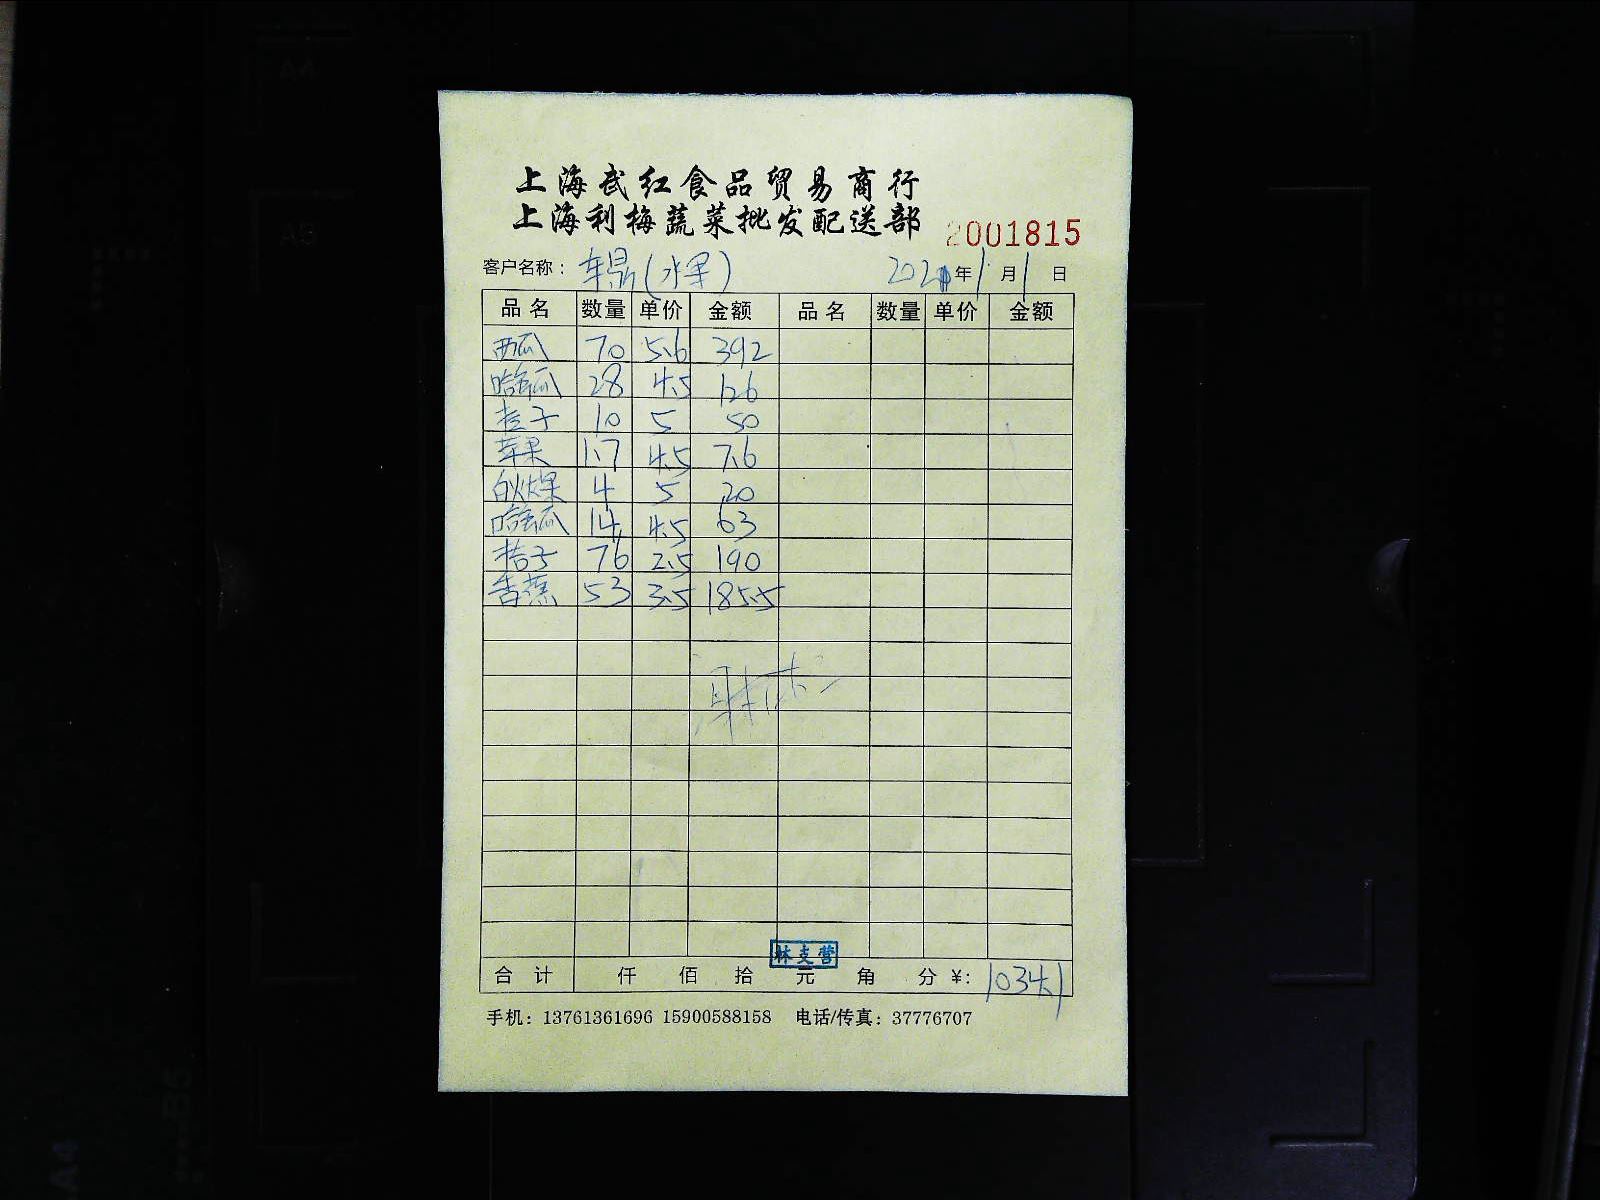 上海武红食品贸易商行
上海利梅蔬菜批发配送部
2001815
客户名称： 车鼎(水果) 2021年1月1日
品名 数量 单价 金额 品名 数量 单价 金额
西瓜 70 5.6 392
哈密瓜 28 4.5 126
橙子 10 5 50
苹果 1.7 4.5 7.6
白火龙果 4 5 20
哈密瓜 14 4.5 63
桔子 76 2.5 190
香蕉 53 3.5 185.5
林支营
合计 仟 佰 拾 元 角 分 ¥: 1034.1
手机：13761361696 15900588158 电话/传真：37776707
A4
B5